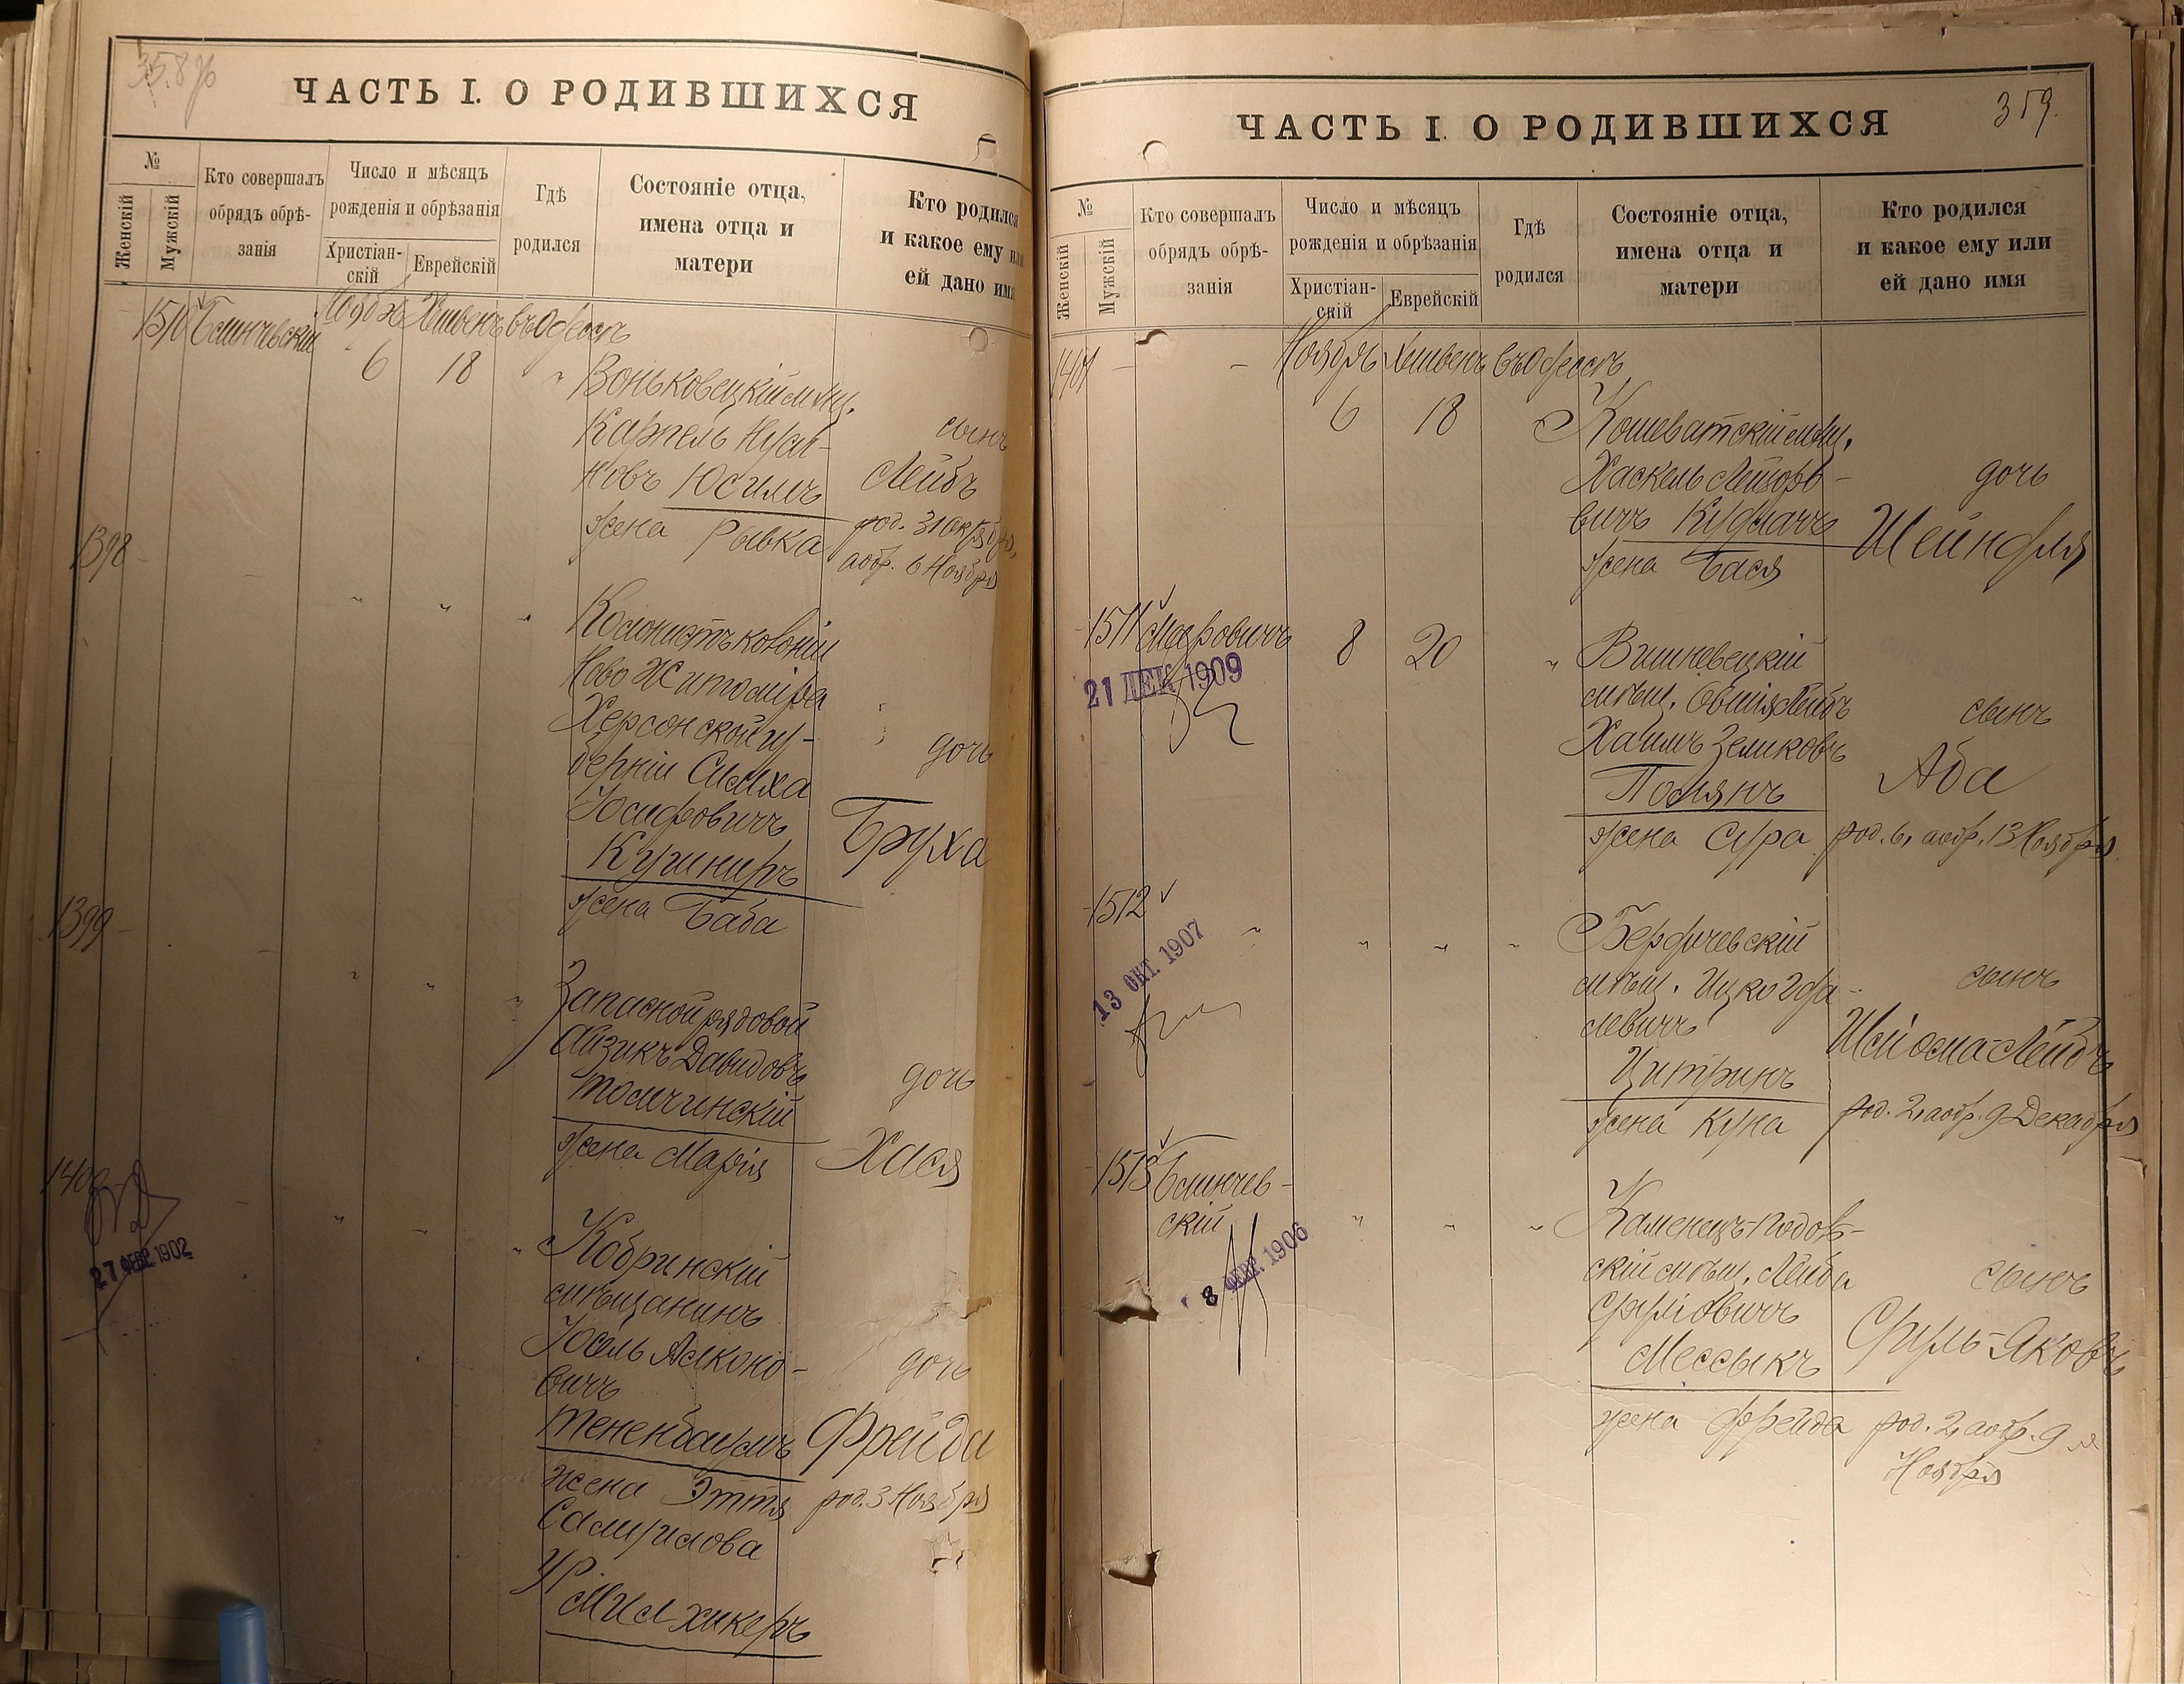 ЧАСТЬ I. О РОДИВШИХСЯ
№
Женскій
Мужскій
Кто совершалъ
обрядъ обрѣ-
занія
Число и мѣсяцъ
рожденія и обрѣзанія
Христіан-
скій
Еврейскій
Гдѣ
родился
Состояніе отца,
имена отца и
матери
Кто родился
и какое ему или
ей дано имя
1510 Хешвенъ въ Одессѣ
6 18 " Воньковецкій мѣщ.
Карпель
новъ Юсимъ
жена Рывка
сынъ
Лейбъ
род. 31 Октября,
а обр. 6 Ноября
1398 - - " " "
Колонистъ колоніи
Ново Житоміра
Херсонской гу-
берніи Симха
Іосифовичъ
Кушниръ
жена Баба
дочь
Бруха
1399 - - " " "
Запасной рядовой
Айзикъ Давидовъ
Толчинскій
жена Марія
дочь
Хася
1400
27 ФЕВ. 1902
" " "
Кобринскій
мѣщанинъ
Іосель
вичъ
Тененбаумъ
жена Этта
Самуилова
дочь
Фрейда
род. 3 Ноября
ЧАСТЬ I. О РОДИВШИХСЯ
359.
№
Женскій
Мужскій
Кто совершалъ
обрядъ обрѣ-
занія
Число и мѣсяцъ
рожденія и обрѣзанія
Христіан-
скій
Еврейскій
Гдѣ
родился
Состояніе отца,
имена отца и
матери
Кто родился
и какое ему или
ей дано имя
1401 - - Ноябрь Хешвенъ въ Одессѣ
6 18 " Кошеватскій мѣщ.
Хаскель Лейзоро-
вичъ
жена Бася
дочь
Шейндля
1511 Мееровичъ 8 20 "
21 ДЕК 1909
Вишневецкій
мѣщ. Овшія Лейбъ
Хаимъ Зеликовъ
жена Сура
сынъ
Аба
род. 6, а обр. 13 Ноября
1512 " " " "
13 ОКТ. 1907
Бердичевскій
мѣщ. Ицко Уда-
левичъ
Цитринъ
жена Куна
сынъ
Шлома-Лейбъ
род. 2, а обр. 9 Декабря
1513 Блинчев-
скій " " "
8 ФЕВР. 1906
Каменецъ-Подоль-
скій мѣщ. Лейба
Срулiовичъ
Мессыкъ
жена Фрейда
сынъ
Сруль-Яковъ
род. 2, а обр. 9
Ноября